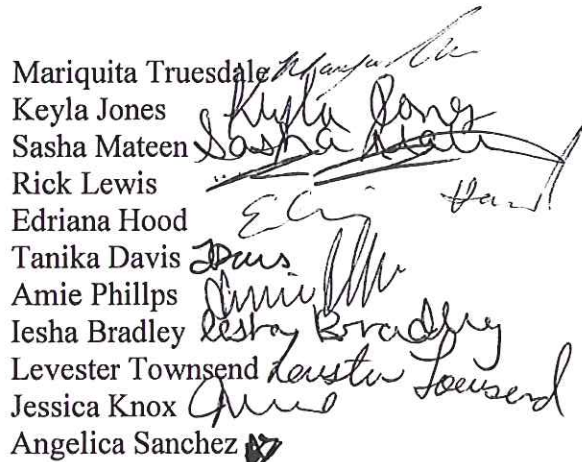 Mariquita Truesdale
Keyla Jones Keyla Jones
Sasha Mateen Sasha
Rick Lewis
Edriana Hood
Tanika Davis TDavis
Amie Phillps Amie
Iesha Bradley Iesha Bradley
Levester Townsend Levester Townsend
Jessica Knox
Angelica Sanchez